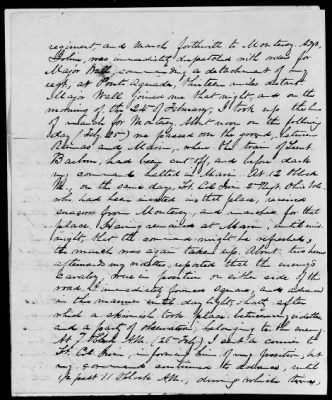 regiment and march forthwith to Monterey. Capt.
John, was immediately dispatched with orders for
Major Wall, commanding a detachment of my
regt, at Punta Aguada, thirteen miles distant.
Major Wall joined me that night, and on the
morning of the 24th of February, I took up the line
of march for Monterey. About noon on the following
day (Feby. 25) we passed over the ground, between
Ramos and Marin, where the train of Lieut.
Barbour, had been cut off, and before dark
my command halted in Marin. At 12 O'clock
M., on the same day, Lt. Col. Irvin 2nd Regt. Ohio Vols.
who had been invested in that place, received
succor from Monterey, and marched for that
place. Having remained at Marin, until mid
night, that the command might be refreshed,
the march was again taken up. About two hours
afterwards my videttes, reported that the enemy's
Cavalry were in position on either side of the
road. I immediately formed square, and advanced
in this manner until day light, shortly after
which a skirmish took place, between my videttes
and a party of observation, belonging to the enemy.
At 7 O'clock A.M. (26 Feby) I sent a courier to
Lt. Col. Irvin, informing him of my position, but
my command continued to advance, until
½ past 11 O'clock A.M., during which time,